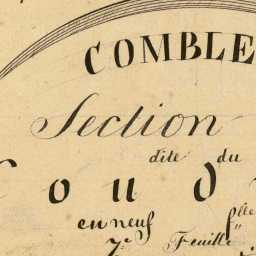 COMBLE
Section
dite du
Coud
en neuf flles
7e Feuille